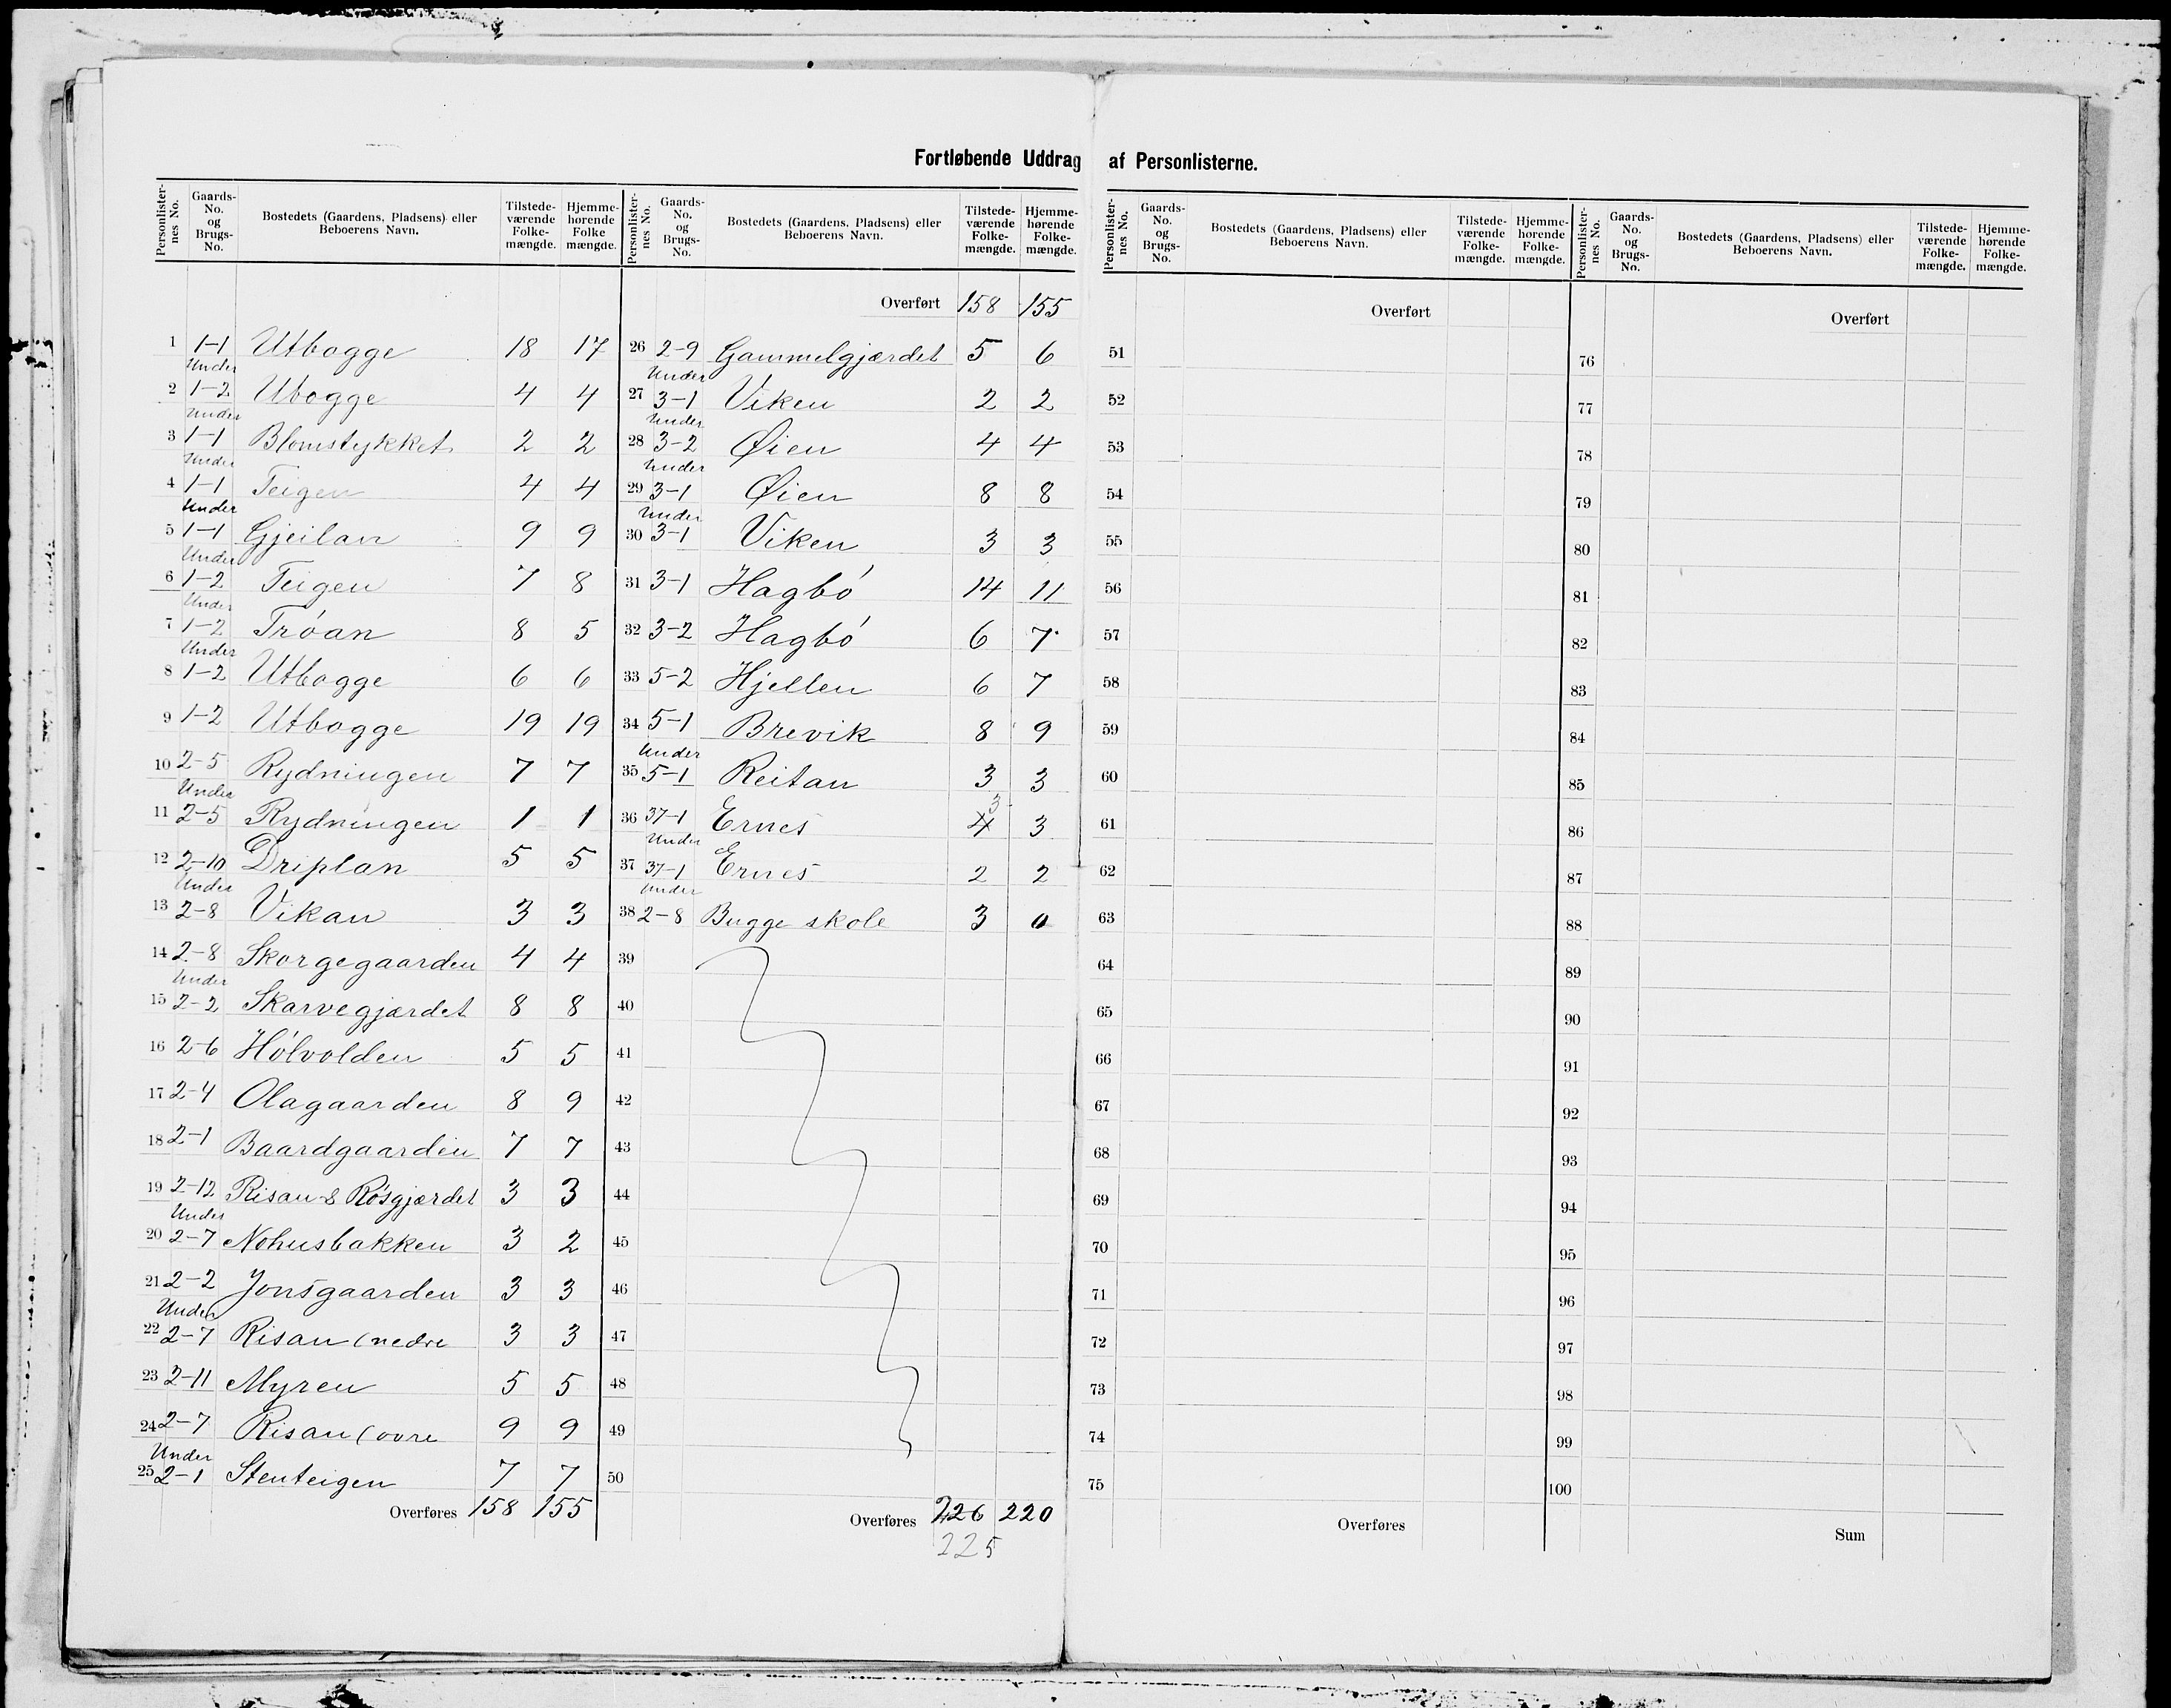 Fortløbende Uddrag af Personlisterne.
Personlister-nes No. Gaards-No. og Brugs-No. Bostedets (Gaardens, Pladsens) eller Beboerens Navn. Tilstede-værende Folke-mængde. Hjemme-hørende Folke mængde.
1 1-1 Utbogge 18 17
2 Under 1-2 Ubogge 4 4
3 Under 1-1 Blomstykket 2 2
4 Under 1-1 Teigen 4 4
5 Under 1-1 Gjeilan 9 9
6 Under 1-2 Teigen 7 8
7 Under 1-2 Tróan 8 5
8 Under 1-2 Utbogge 6 6
9 1-2 Utbogge 19 19
10 2-5 Rydningen 7 7
11 Under 2-5 Rydningen 1 1
12 2-10 Driplan 5 5
13 Under 2-8 Vikan 3 3
14 2-8 Skorgegaarden 4 4
15 Under 2-2 Skarvegjærdet 8 8
16 2-6 Hólvolden 5 5
17 2-4 Olagaarden 8 9
18 2-1 Baardgaarden 7 7
19 2-12 Risan & Rósgjærdet 3 3
20 Under 2-7 Nohusbakken 3 2
21 2-2 Jonsgaarden 3 3
22 Under 2-7 Risan (nedre 3 3
23 2-11 Myren 5 5
24 2-7 Risan (ovre 9 9
25 Under 2-1 Stenteigen 7 7
Overføres 158 155
Personlister-nes No. Gaards-No. og Brugs-No. Bostedets (Gaardens, Pladsens) eller Beboerens Navn. Tilstede-værende Folke-mængde. Hjemme-hørende Folke-mængde.
Overført 158 155
26 2-9 Gammelgjærdet 5 6
27 Under 3-1 Viken 2 2
28 Under 3-2 Øien 4 4
29 Under 3-1 Øien 8 8
30 Under 3-1 Viken 3 3
31 3-1 Hagbó 14 11
32 3-2 Hagbó 6 7
33 5-2 Hjellen 6 7
34 5-1 Brevik 8 9
35 Under 5-1 Reitan 3 3
36 37-1 Ernes 4 3 3
37 Under 37-1 Ernes 2 2
38 Under 2-8 Bugge skole 3 0
39
40
41
42
43
44
45
46
47
48
49
50
Overføres 226 220
225
Personlister-nes No. Gaards-No. og Brugs-No. Bostedets (Gaardens, Pladsens) eller Beboerens Navn. Tilstede-værende Folke-mængde. Hjemme-hørende Folke-mængde.
Overført
51
52
53
54
55
56
57
58
59
60
61
62
63
64
65
66
67
68
69
70
71
72
73
74
75
Overføres
Personlister-nes No. Gaards-No. og Brugs-No. Bostedets (Gaardens, Pladsens) eller Beboerens Navn. Tilstede-værende Folke-mængde. Hjemme-hørende Folke-mængde.
Overført
76
77
78
79
80
81
82
83
84
85
86
87
88
89
90
91
92
93
94
95
96
97
98
99
100
Sum